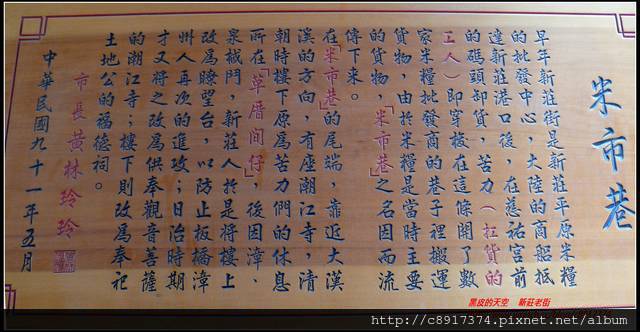 米市巷
早年新莊街是新莊平原米糧
的批發中心,大陸的商船抵
達新莊港口後,在慈祐宮前
的碼頭卸貨,苦力(扛貨的
工人)即穿梭在這條開了數
家米糧批發商的巷子裡搬運
貨物,由於米糧是當時主要
的貨物,「米市巷」之名因而流
傳下來。
在「米市巷」的尾端,靠近大漢
溪的方向,有座潮江寺,清
朝時樓下原為苦力們的休息
所在「草厝間仔」,後因漳、
泉械鬥,新莊人於是將樓上
改為瞭望台,以防止板橋漳
州人再次的進攻;日治時期
才又將之改為供奉觀音菩薩
的潮江寺;樓下則改為奉祀
土地公的福德祠。
市長黃林玲玲
中華民國九十一年五月
黑皮的天空 新莊老街
http://c8917374.pixnet.net/album